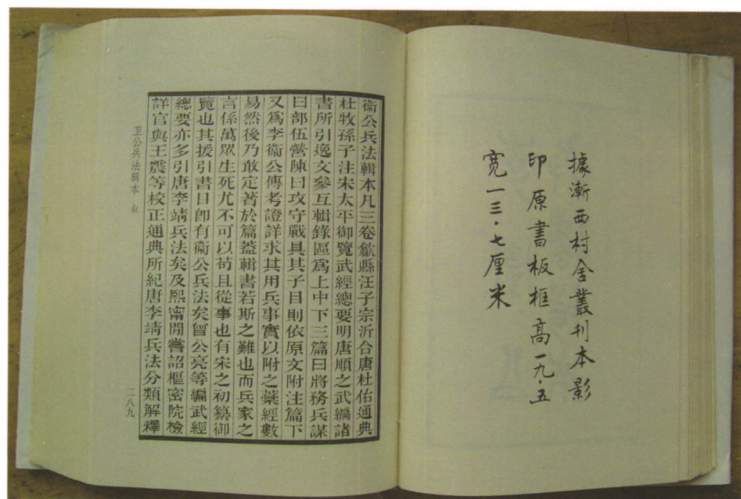 據漸西村舍叢刊本影
印原書板框高一九·五
寬一三·七厘米
衞公兵法輯本凡三卷歙縣汪子宗沂合唐杜佑通典
杜牧孫子注宋太平御覽武經總要明唐順之武編諸
書所引逸文參互輯錄區爲上中下三篇曰將務兵謀
曰部伍營陳曰攻守戰具其子目則依原文附注篇下
又爲李衞公傳考證詳求其用兵事實以附之藁經數
易然後乃敢定著於篇蓋輯書若斯之難也而兵家之
言係萬眾生死尤不可以苟且從事也有宋之初纂御
覽也其援引書目卽有衞公兵法矣曾公亮等編武經
總要亦多引唐李靖兵法矣及熙甯閒嘗詔樞密院檢
詳官與王震等校正通典所紀唐李靖兵法分類解釋
卫公兵法輯本 叙
二八九